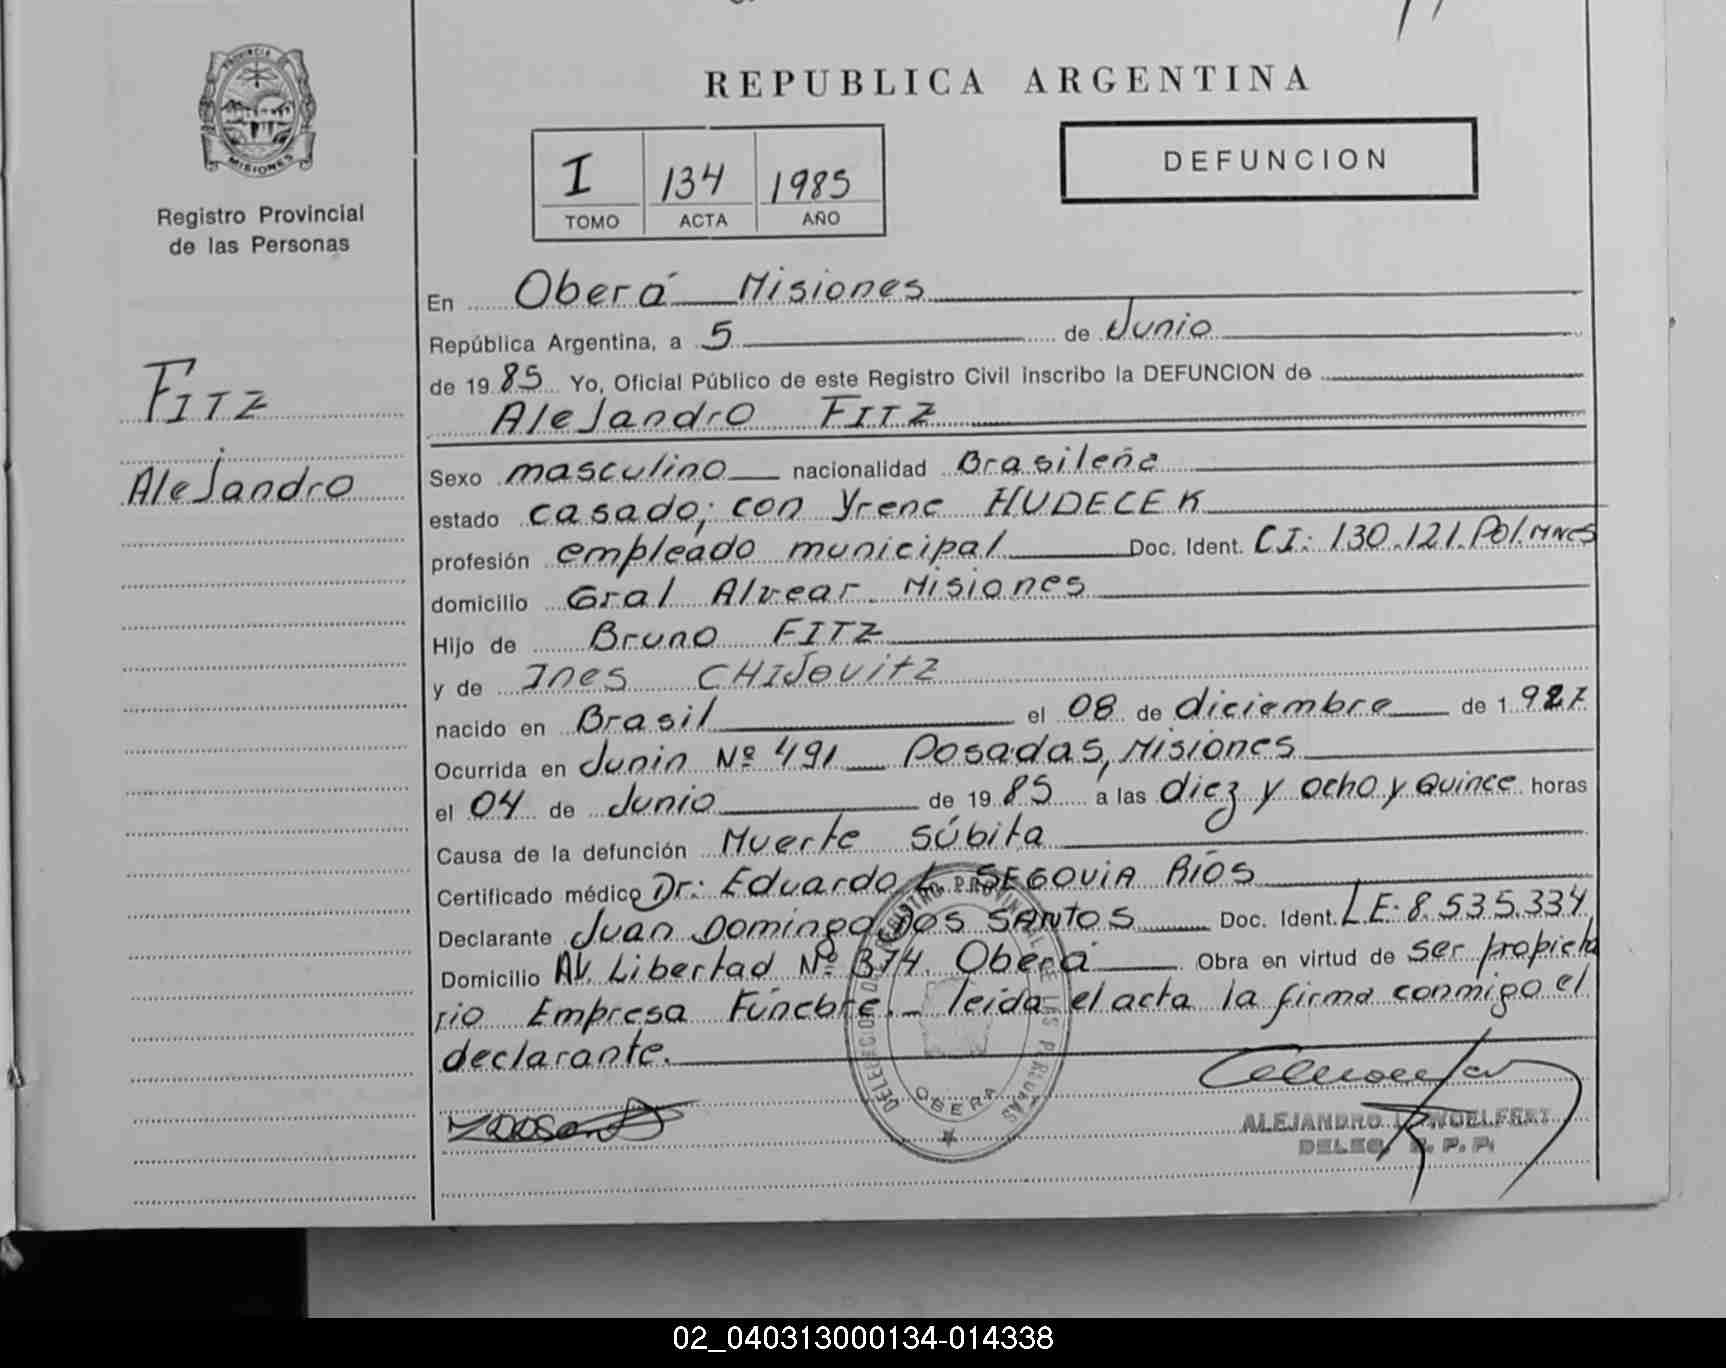 PROVINCIA DE
MISIONES
Registro Provincial
de las Personas
Fitz
Alejandro
REPUBLICA ARGENTINA
I 134 1985
TOMO ACTA AÑO
DEFUNCION
En Oberá Misiones
República Argentina, a 5 de Junio
de 1985 Yo, Oficial Público de este Registro Civil inscribo la DEFUNCION de
Alejandro FITZ
Sexo masculino nacionalidad Brasileña
estado casado; con Yrene HUDECEK
profesión empleado municipal Doc. Ident. CI: 130.121.Pol.Mnes
domicilio Gral Alvear. Misiones
Hijo de Bruno FITZ
y de Ines CHIJovitz
nacido en Brasil el 08 de diciembre de 1.927.
Ocurrida en Junin Nº 491 Posadas, Misiones
el 04 de Junio de 1985 a las diez y ocho y Quince horas
Causa de la defunción Muerte Súbita
Certificado médico Dr: Eduardo L. SEGOVIA RíOS
Declarante Juan Domingo DOS SANTOS Doc. Ident. LE. 8.535.334
Domicilio AV. Libertad Nº 374. Oberá Obra en virtud de ser propieta
rio Empresa Fúnebre. leída el acta la firma conmigo el
declarante.
OBERA
ALEJANDRO
DELEG. R. P. P.
02_040313000134-014338